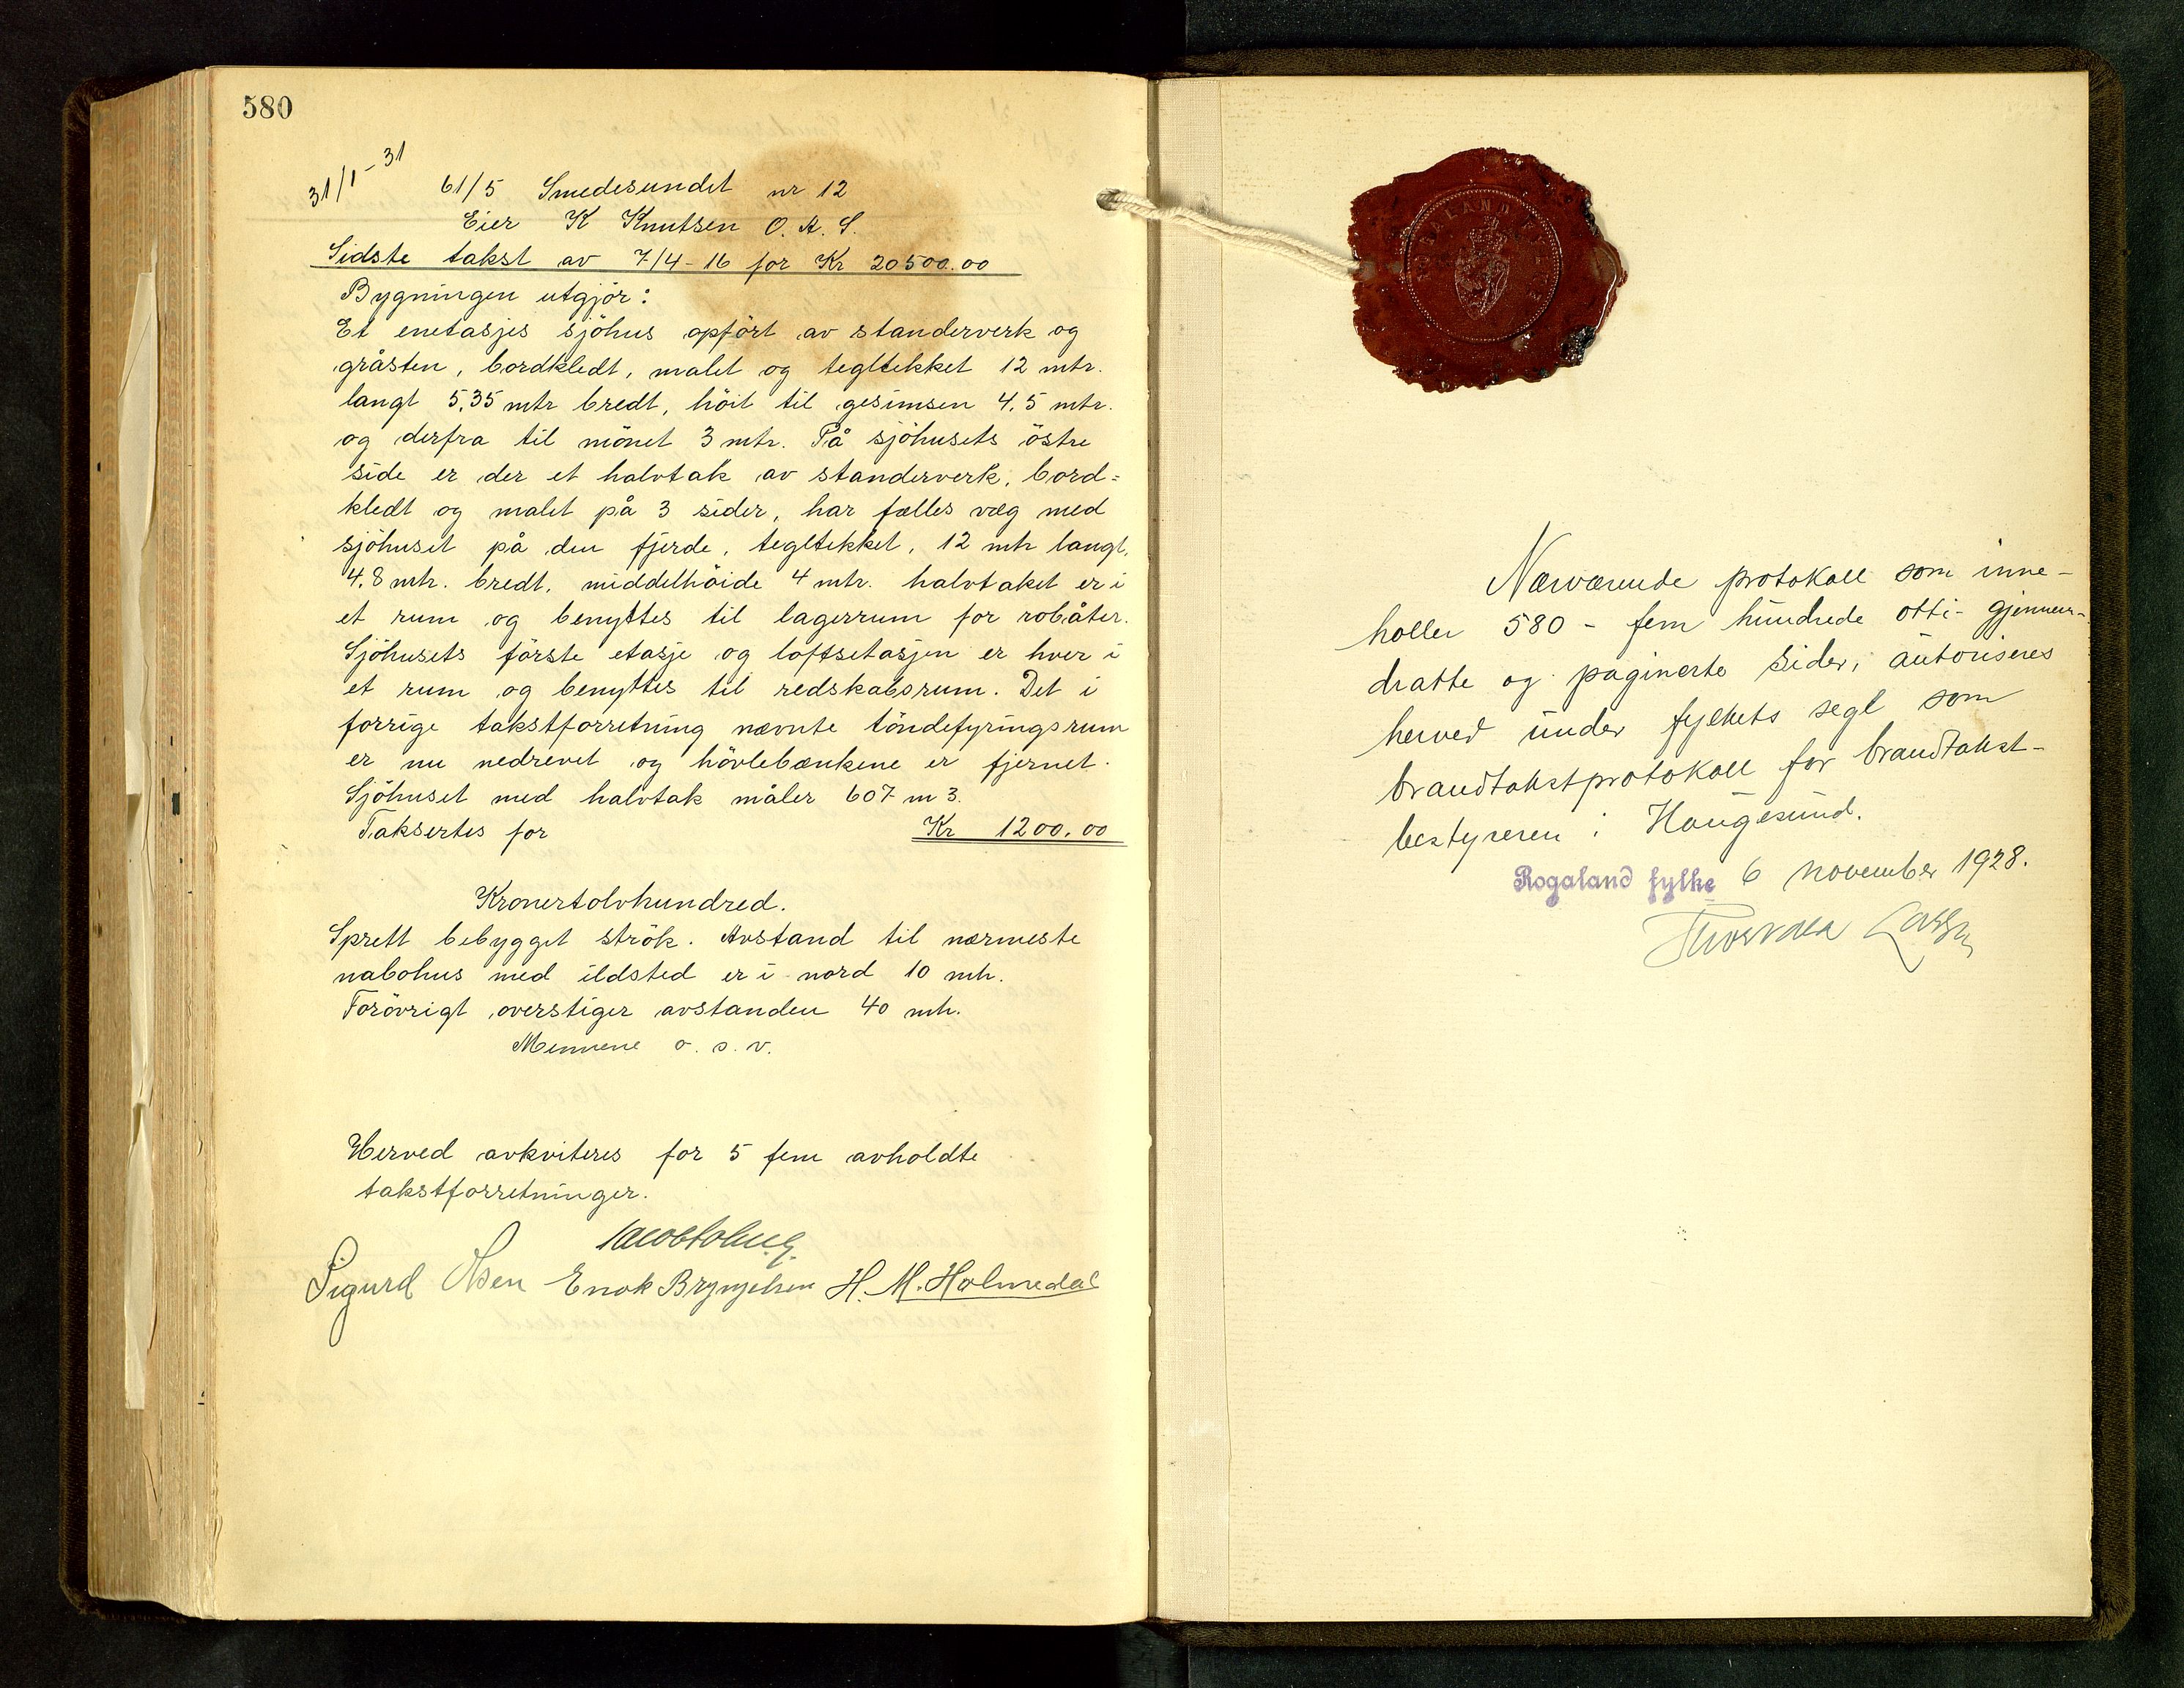 580
31/1-31
61/5 Smedesundet nr 12
Eier K Knutsen O. A. S.
Sidste takst av 7/4-16 for Kr 20500.00
Bygningen utgjör:
Et enetasjes sjöhus opfört av standerverk og
gråsten, bordkledt, malet og tegltekket 12 mtr.
langt 5,35 mtr bredt, höit til gesimsen 4,5 mtr.
og derfra til mönet 3 mtr. På sjöhusets östre
side er der et halvtak av standerverk, bord=
kledt og malet på 3 sider, har fælles væg med
sjöhuset på den fjerde, tegltekket, 12 mtr langt,
4,8 mtr. bredt, middelhöide 4 mtr. halvtaket er i
et rum og benyttes til lagerrum for robåter.
Sjöhusets förste etasje og loftsetasjen er hver i
et rum og benyttes til redskabsrum. Det i
forrige takstforretning nævnte töndefyringsrum
er nu nedrevet og hövlebænkene er fjernet.
Sjöhuset med halvtak måler 607 m3.
Taksertes for Kr 1200.00
Kronertolvhundred.
Sprett bebygget strök. Avstand til nærmeste
nabohus med ildsted er i nord 10 mtr.
Forövrigt overstiger avstanden 40 mtr.
Mennene o. s. v.
Herved avkviteres for 5 fem avholdte
takstforretninger.
Sigurd Olsen Enok Brynjelsen H. M. Holmedal
ROGALAND FYLKE
Nærværende protokoll som inne-
holler 580 - fem hundrede otti- gjennem-
dratte og paginerte sider, autoriseres
herved under fylkets segl som
brandtakstprotokoll for brandtakst-
bestyreren i Haugesund.
Rogaland fylke 6 november 1928.
Thorvald Larsen